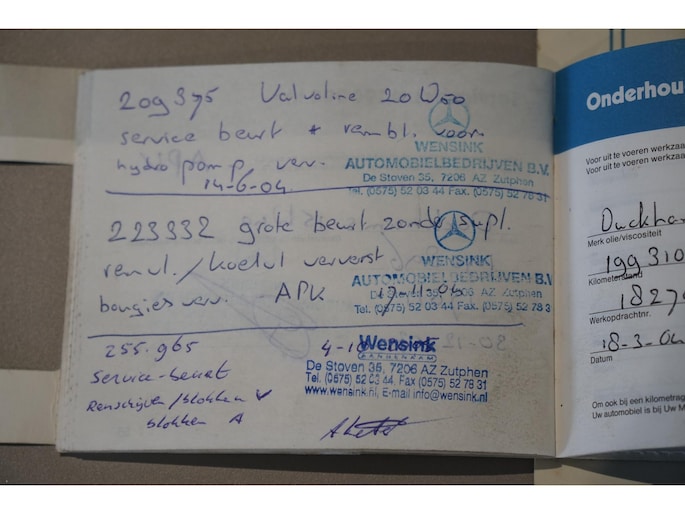 209375 Valvoline 20W50
service beurt + rembl. voor
hydro pomp verv.
14-6-04
WENSINK
AUTOMOBIELBEDRIJVEN B.V.
De Stoven 35, 7206 AZ Zutphen
Tel. (0575) 52 03 44 Fax. (0575) 52 78 31
223332 grote beurt zonder supl.
remvl./koelvl ververst
bougies verv. APK
WENSINK
AUTOMOBIELBEDRIJVEN B.V
De Stoven 35, 7206 AZ Zutphen
17-11-04
Tel. (0575) 52 03 44 Fax. (0575) 52 78 3
255.965
4-10
Service-beurt
Remschijven/blokken V
blokken A
Wensink
De Stoven 35, 7206 AZ Zutphen
Tel. (0575) 52 03 44, Fax (0575) 52 78 31
www.wensink.nl, E-mail info@wensink.nl
Onderhou
Voor uit te voeren werkzaa
Voor uit te voeren werkzaa
Duckha
Merk olie/viscositeit
199310
Kilometerstand
1827
Werkopdrachtnr.
18-3-04
Datum
Om ook bij een kilometrag
Uw automobiel is bij Uw M